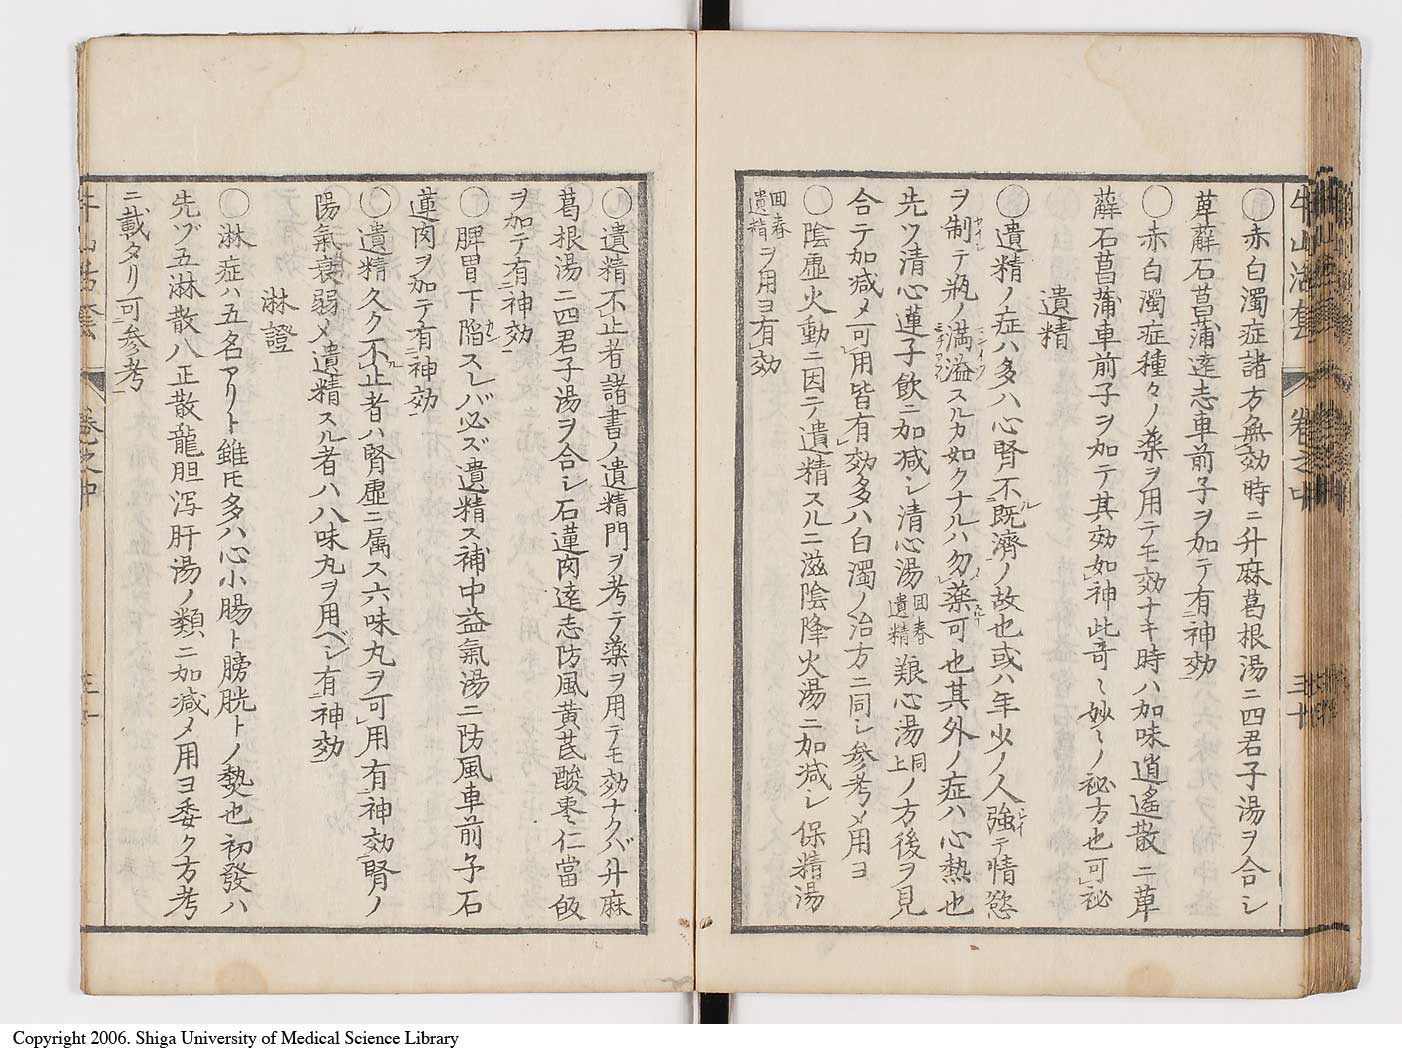 牛山活套 卷之中 三十
○赤白濁症諸方無効時ニ升麻葛根湯ニ四君子湯ヲ合シ
萆薢石菖蒲遠志車前子ヲ加テ有神効
○赤白濁症種々ノ藥ヲ用テモ効ナキ時ハ加味逍遙散ニ萆
薢石菖蒲車前子ヲ加テ其効如神此奇〻妙〻ノ祕方也可祕
遺精
○遺精ノ症ハ多ハ心腎不既濟ノ故也或ハ年少ノ人強テ情慾
ヲ制テ瓶ノ満溢スルカ如クナルハ勿藥可也其外ノ症ハ心熱也
先ツ清心蓮子飲ニ加减シ清心湯回春遺精艱心湯同上ノ方後ヲ見
合テ加减メ可用皆有効多ハ白濁ノ治方ニ同シ参考メ用ヨ
○陰虚火動ニ因テ遺精スルニ滋陰降火湯ニ加减シ保精湯
回春遺精ヲ用ヨ有効
○遺精不止者諸書ノ遺精門ヲ考テ藥ヲ用テモ効ナクバ升麻
葛根湯ニ四君子湯ヲ合シ石蓮肉遠志防風黄芪酸棗仁當皈
ヲ加テ有神効
○脾胃下陥スレバ必ズ遺精ス補中益氣湯ニ防風車前子石
蓮肉ヲ加テ有神効
○遺精久ク不止者ハ腎虚ニ属ス六味丸ヲ可用有神効腎ノ
陽氣衰弱メ遺精スル者ハ八味丸ヲ用ベシ有神効
淋證
○淋症ハ五名アリト雖𪜈多ハ心小腸ト膀胱トノ𤍠也初發ハ
先ヅ五淋散八正散龍胆瀉肝湯ノ類ニ加减メ用ヨ委ク方考
ニ載タリ可参考
卷之中
Copyright 2006. Shiga University of Medical Science Library